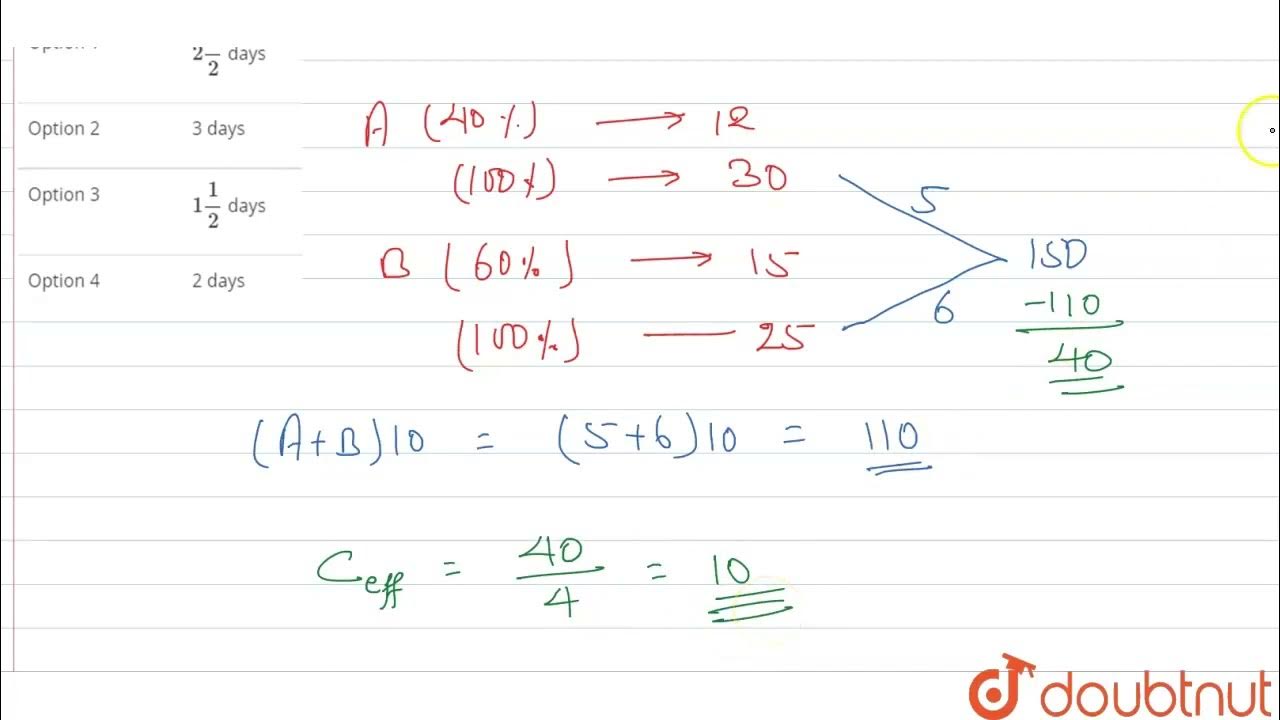 2 — days
2
Option 2 3 days
Option 3 1 1/2 days
Option 4 2 days
A (40%) → 12
(100%) → 30
5
B (60%) → 15
6
(100%) — 25
150
-110
40
(A+B)10 = (5+6)10 = 110
Ceff = 40/4 = 10
doubtnut